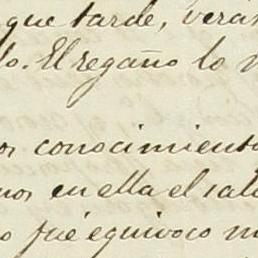 que tarde, verá
lo. El regaño lo
os conocimient
nos en ella el sal
o fué equivoco m